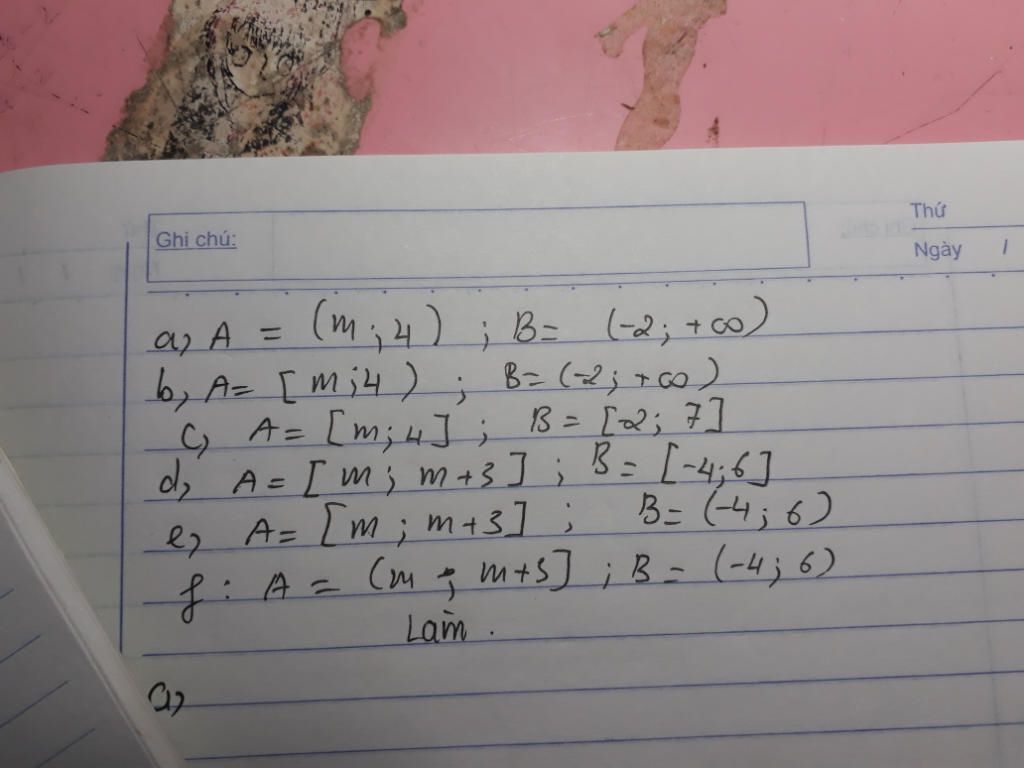 Thứ
Ghi chú:
Ngày /
a, A = (m ; 4) ; B = (-2; +∞)
b, A = [m;4) ; B = (-2; +∞)
c, A = [m; 4] ; B = [-2; 7]
d, A = [m; m+3] ; B = [-4;6]
e, A = [m ; m+3] ; B = (-4; 6)
f : A = (m ; m+3] ; B = (-4; 6)
Làm .
a,